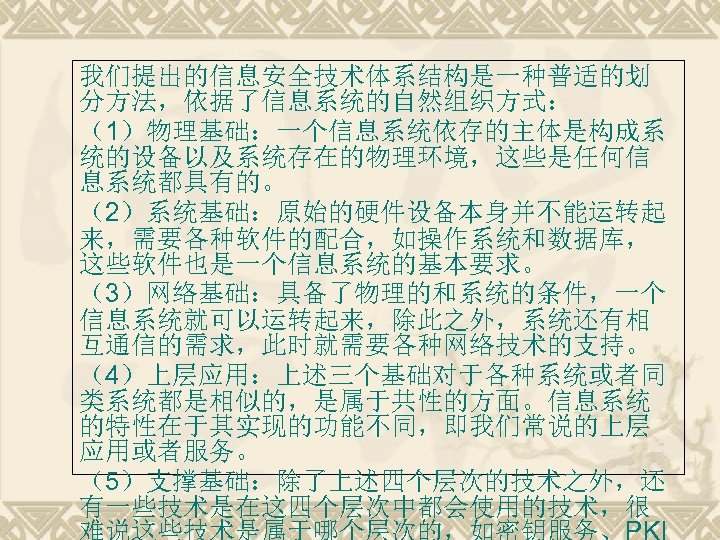 我们提出的信息安全技术体系结构是一种普适的划
分方法，依据了信息系统的自然组织方式：
（1）物理基础：一个信息系统依存的主体是构成系
统的设备以及系统存在的物理环境，这些是任何信
息系统都具有的。
（2）系统基础：原始的硬件设备本身并不能运转起
来，需要各种软件的配合，如操作系统和数据库，
这些软件也是一个信息系统的基本要求。
（3）网络基础：具备了物理的和系统的条件，一个
信息系统就可以运转起来，除此之外，系统还有相
互通信的需求，此时就需要各种网络技术的支持。
（4）上层应用：上述三个基础对于各种系统或者同
类系统都是相似的，是属于共性的方面。信息系统
的特性在于其实现的功能不同，即我们常说的上层
应用或者服务。
（5）支撑基础：除了上述四个层次的技术之外，还
有一些技术是在这四个层次中都会使用的技术，很
难说这些技术是属于哪个层次的，如密钥服务、PKI